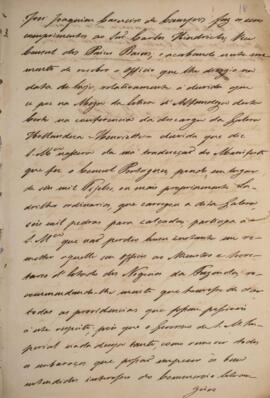 José Joaquim Carneiro de Campos faz os seus
cumprimentos ao Snr. Carlos Hindricks, Vice
Consul dos Paizes Baixos, e acabando neste mo-
mento de receber o officio que lhe dirigio na
data de hoje, relativamente á duvida que
se poz na Meza da Abertura d'Alfandega desta
Corte na conferencia da descarga da Galera
Hollandeza = Henriette = duvida que diz
S. Mce nascera da má traducção do Manifesto
que fez o Consul Portuguez, pondo em lugar
de seis mil Tijolos, ou mais propriamente La-
drilho ordinario, que carregou a dita Galera
seis mil pedras para calçadas, participa a
S. Mce que não perdeo hum instante em re-
metter aquelle seu officio ao Ministro e Secre-
tario d'Estado dos Negocios da Fazenda, re-
commendando-lhe muito que houvesse de dar
todas as providencias que fossem possiveis
a este respeito, pois que o Governo de S. M. Im-
perial nada deseja tanto, como remover todos
os embaraços que possão empecer os bem
entendidos interesses do Commercio Estran-
geiro